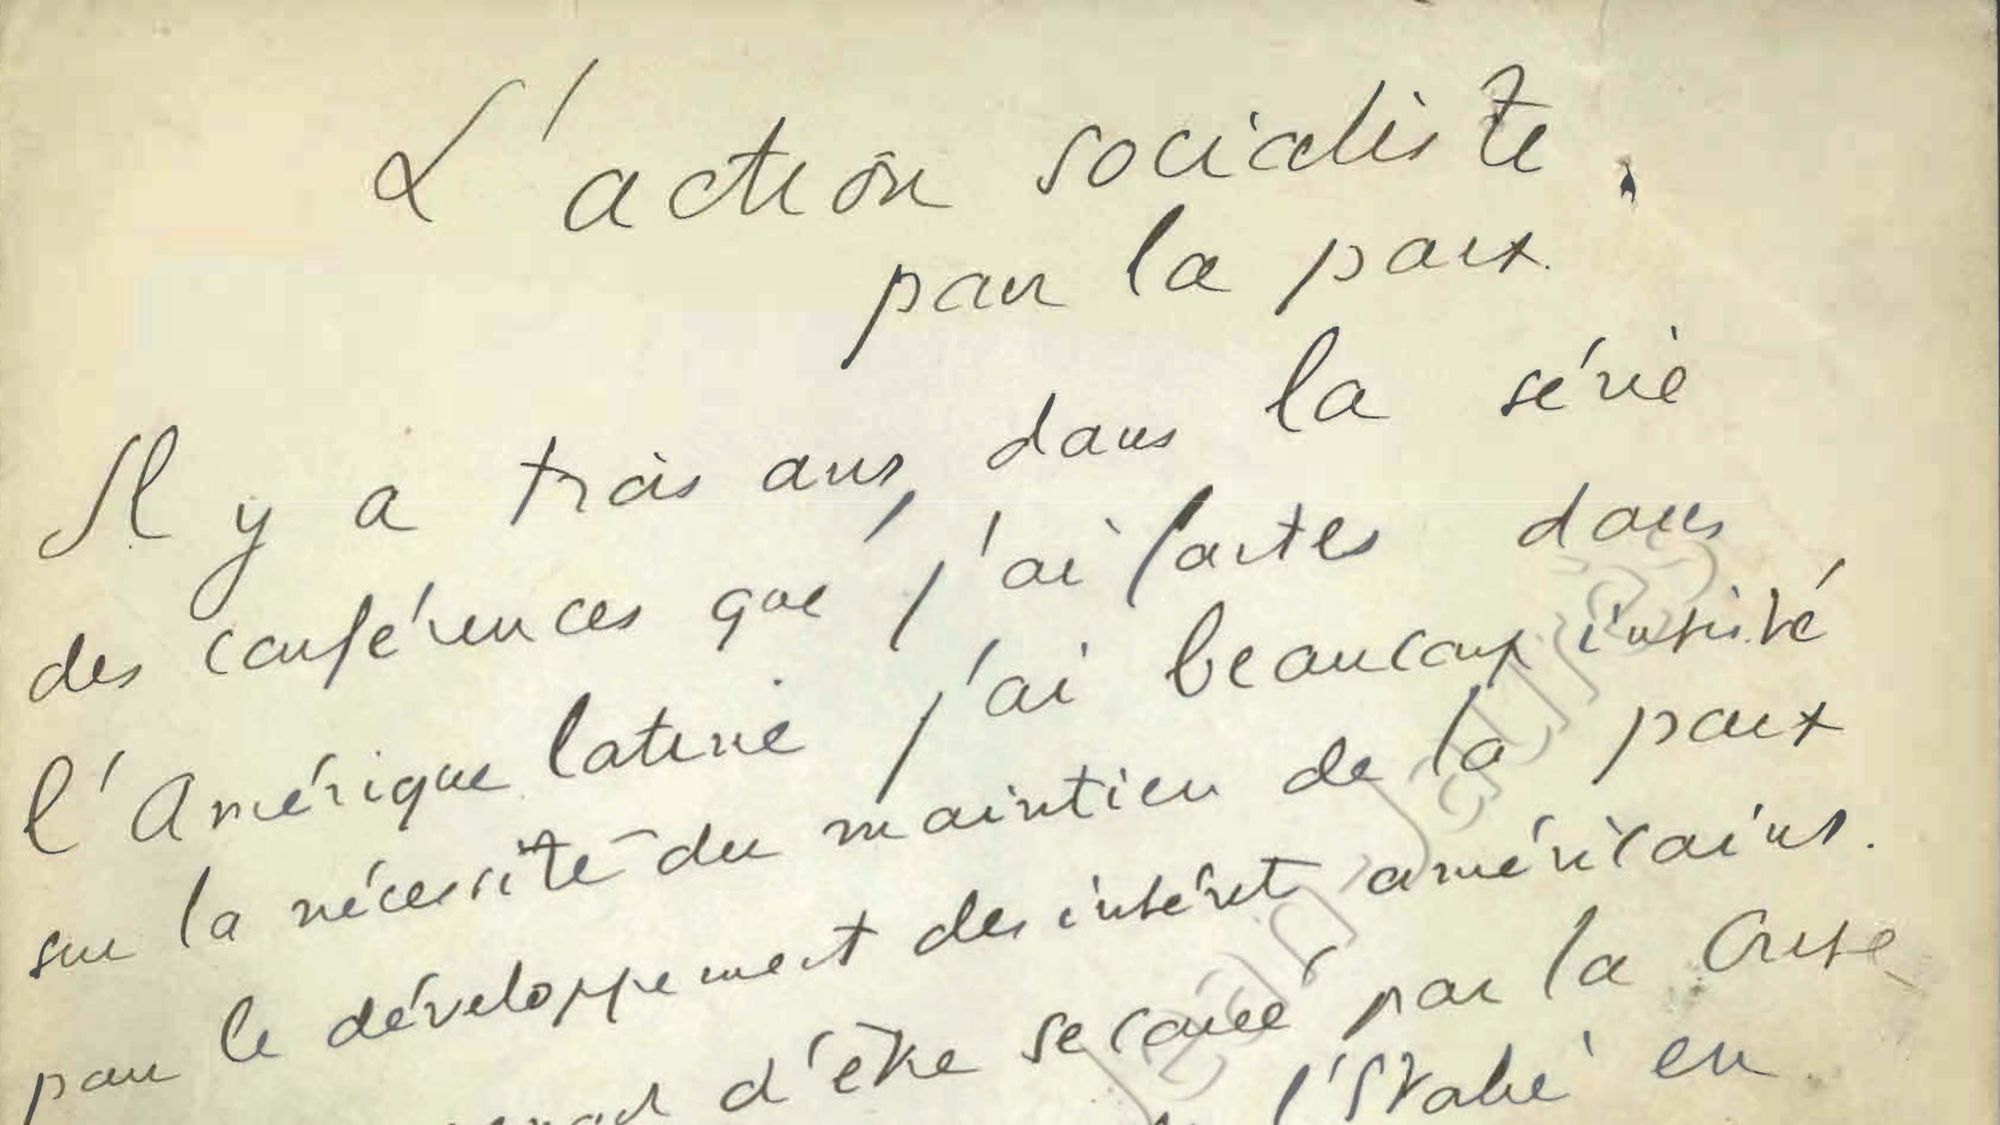 L'action socialiste
pour la paix.
Il y a trois ans, dans la série
des conférences que j'ai faites dans
l'Amérique latine j'ai beaucoup insisté
sur la nécessité du maintien de la paix
pour le développement des intérêt américains.
d'être secoué par la Crise
l'Italie en
Jean Jaurès